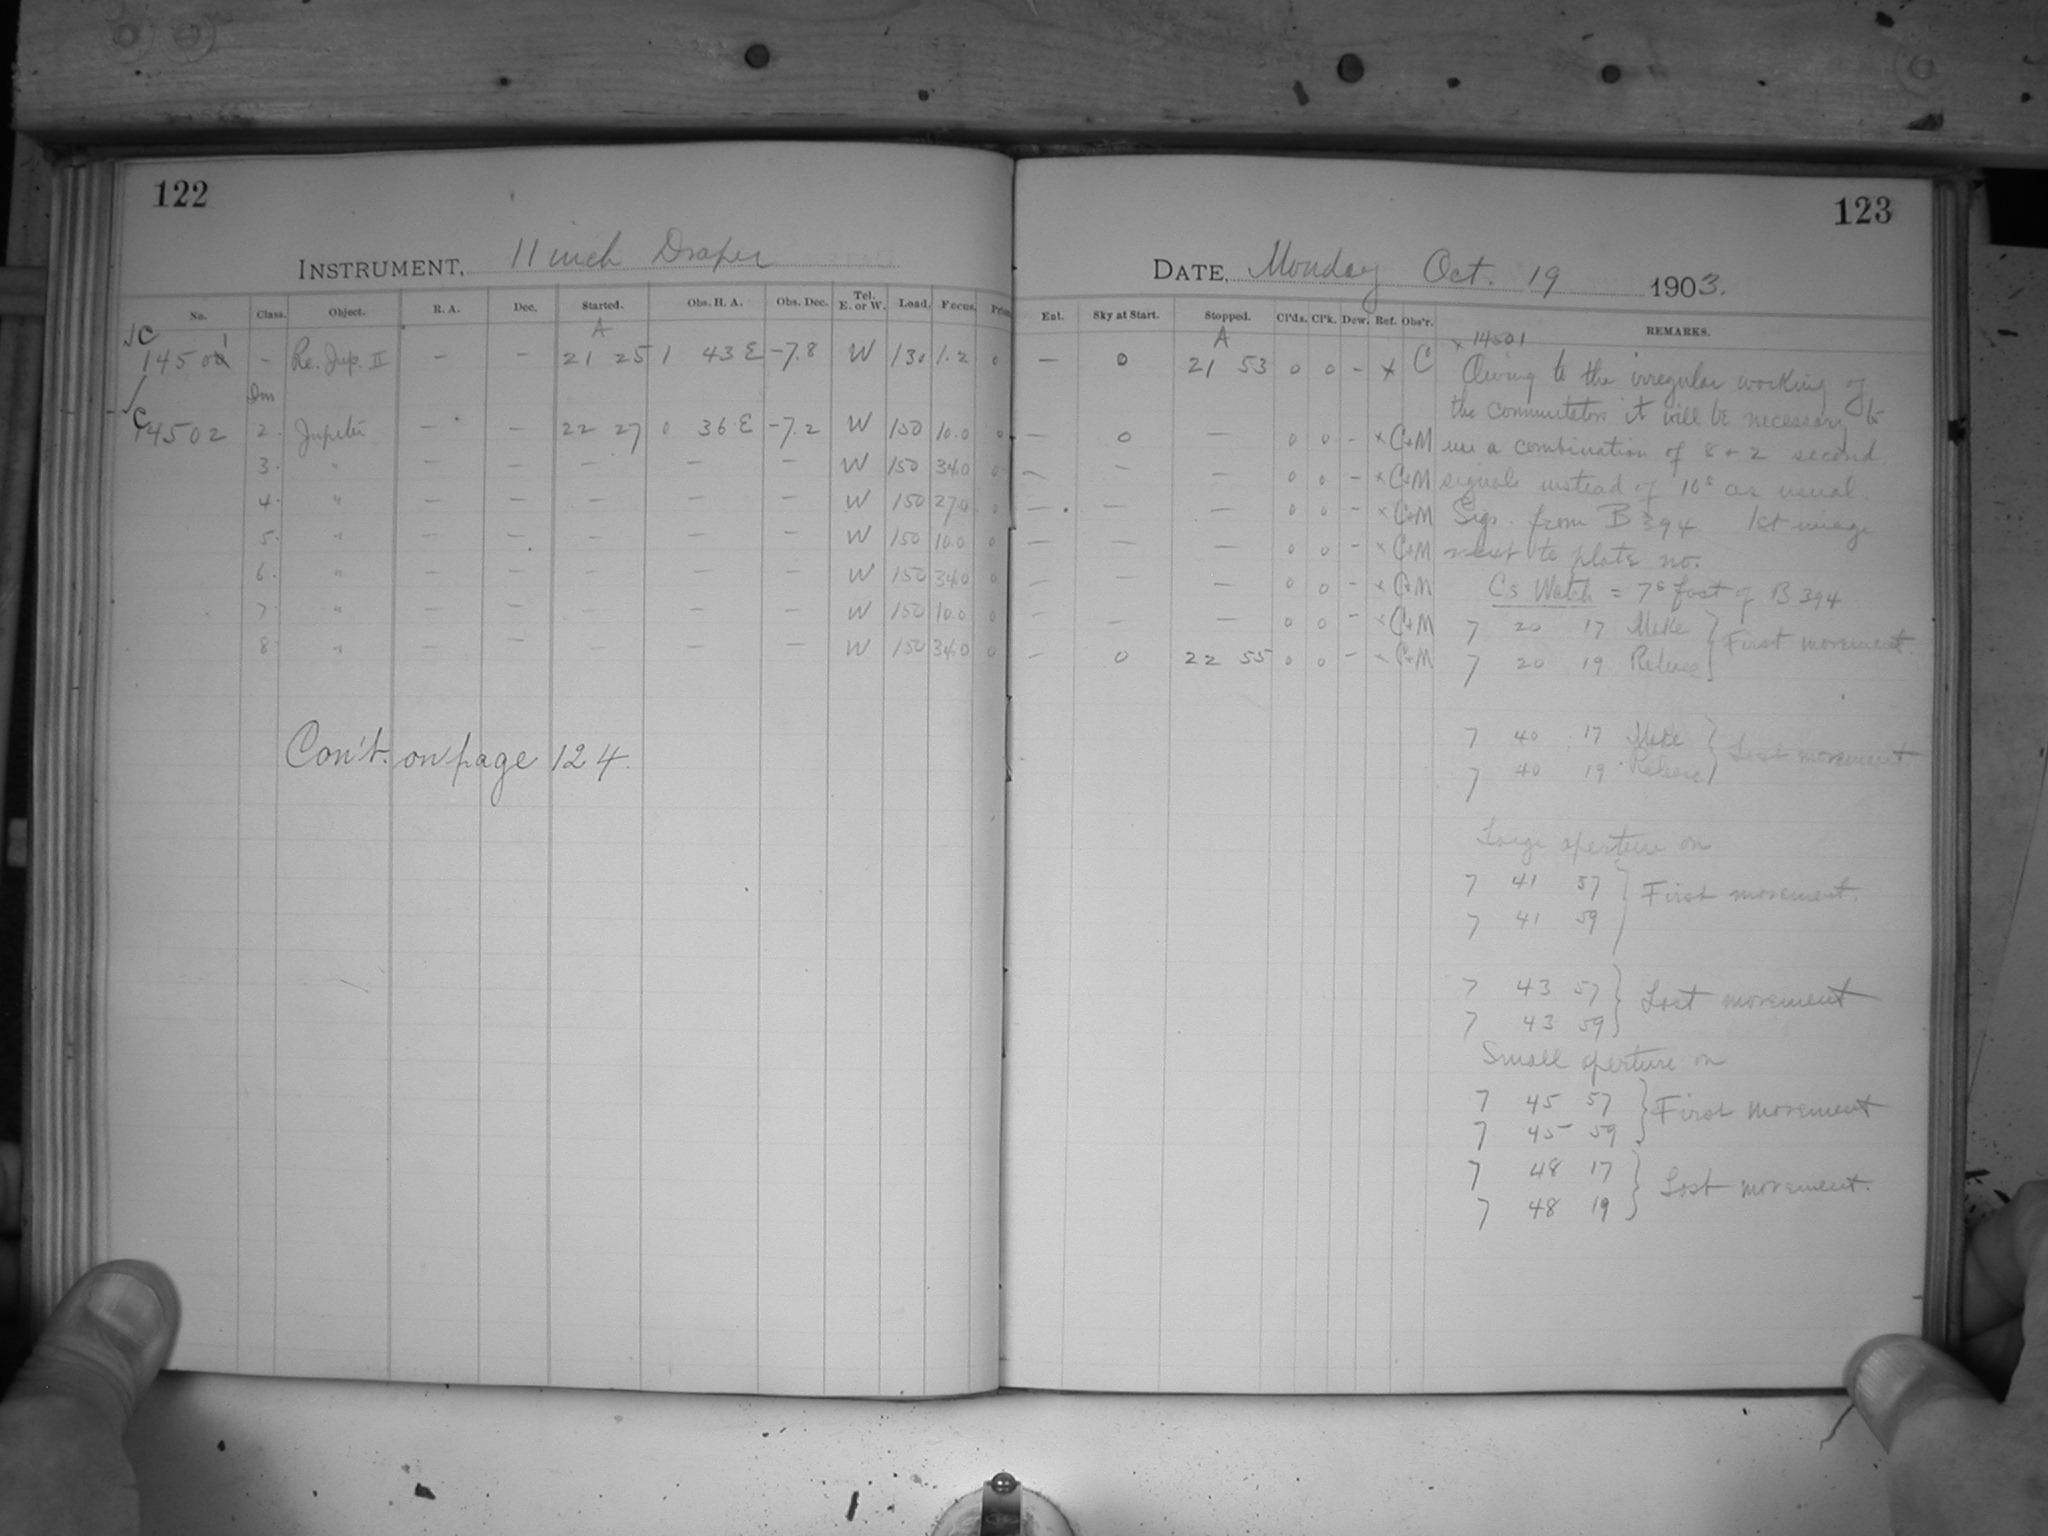 122
INSTRUMENT, 11 inch Draper
No. Class. Object. R. A. Dec. Started. Obs. H. A. Obs. Dec. Tel. E. or W. Load. Focus.
A
C 14501 - Re. Jup. II - - 21 25 1 43 E -7.8 W 130 1.2 0
Dm
C 14502 2. Jupiter - - 22 27 0 36 E -7.2 W 150 10.0 0
3. " - - - - - W 150 34.0 0
4. " - - - - - W 150 27.0 0
5. " - - - - - W 150 10.0 0
6. " - - - - - W 150 34.0 0
7. " - - - - - W 150 10.0 0
8 " - - - - - W 150 34.0 0
Con't. on page 124.
123
DATE, Monday Oct. 19 1903.
Ent. Sky at Start. Stopped. Cl'ds. Cl'k. Dew. Ref. Obs'r. REMARKS.
A
- 0 21 53 0 0 - x C
- 0 - 0 0 - x C+M
- - - 0 0 - x C+M
- - - 0 0 - x C+M
- - - 0 0 - x C+M
- - - 0 0 - x C+M
- - - 0 0 - x C+M
- 0 22 55 0 0 - x C+M
x 14501
Owing to the irregular working of
the commutator it will be necessary to
use a combination of 8 + 2 second
signals instead of 10s as usual.
Sigs. from B 394 1st image
next to plate no.
Cs Watch = 7s fast of B 394
7 20 17 Make } First movement.
7 20 19 Release
7 40 17 Make } Last movement.
7 40 19 Release
Large aperture on
7 41 57 } First movement.
7 41 59
7 43 57 } Last movement
7 43 59
Small aperture on
7 45 57 } First movement
7 45 59
7 48 17 } Last movement.
7 48 19